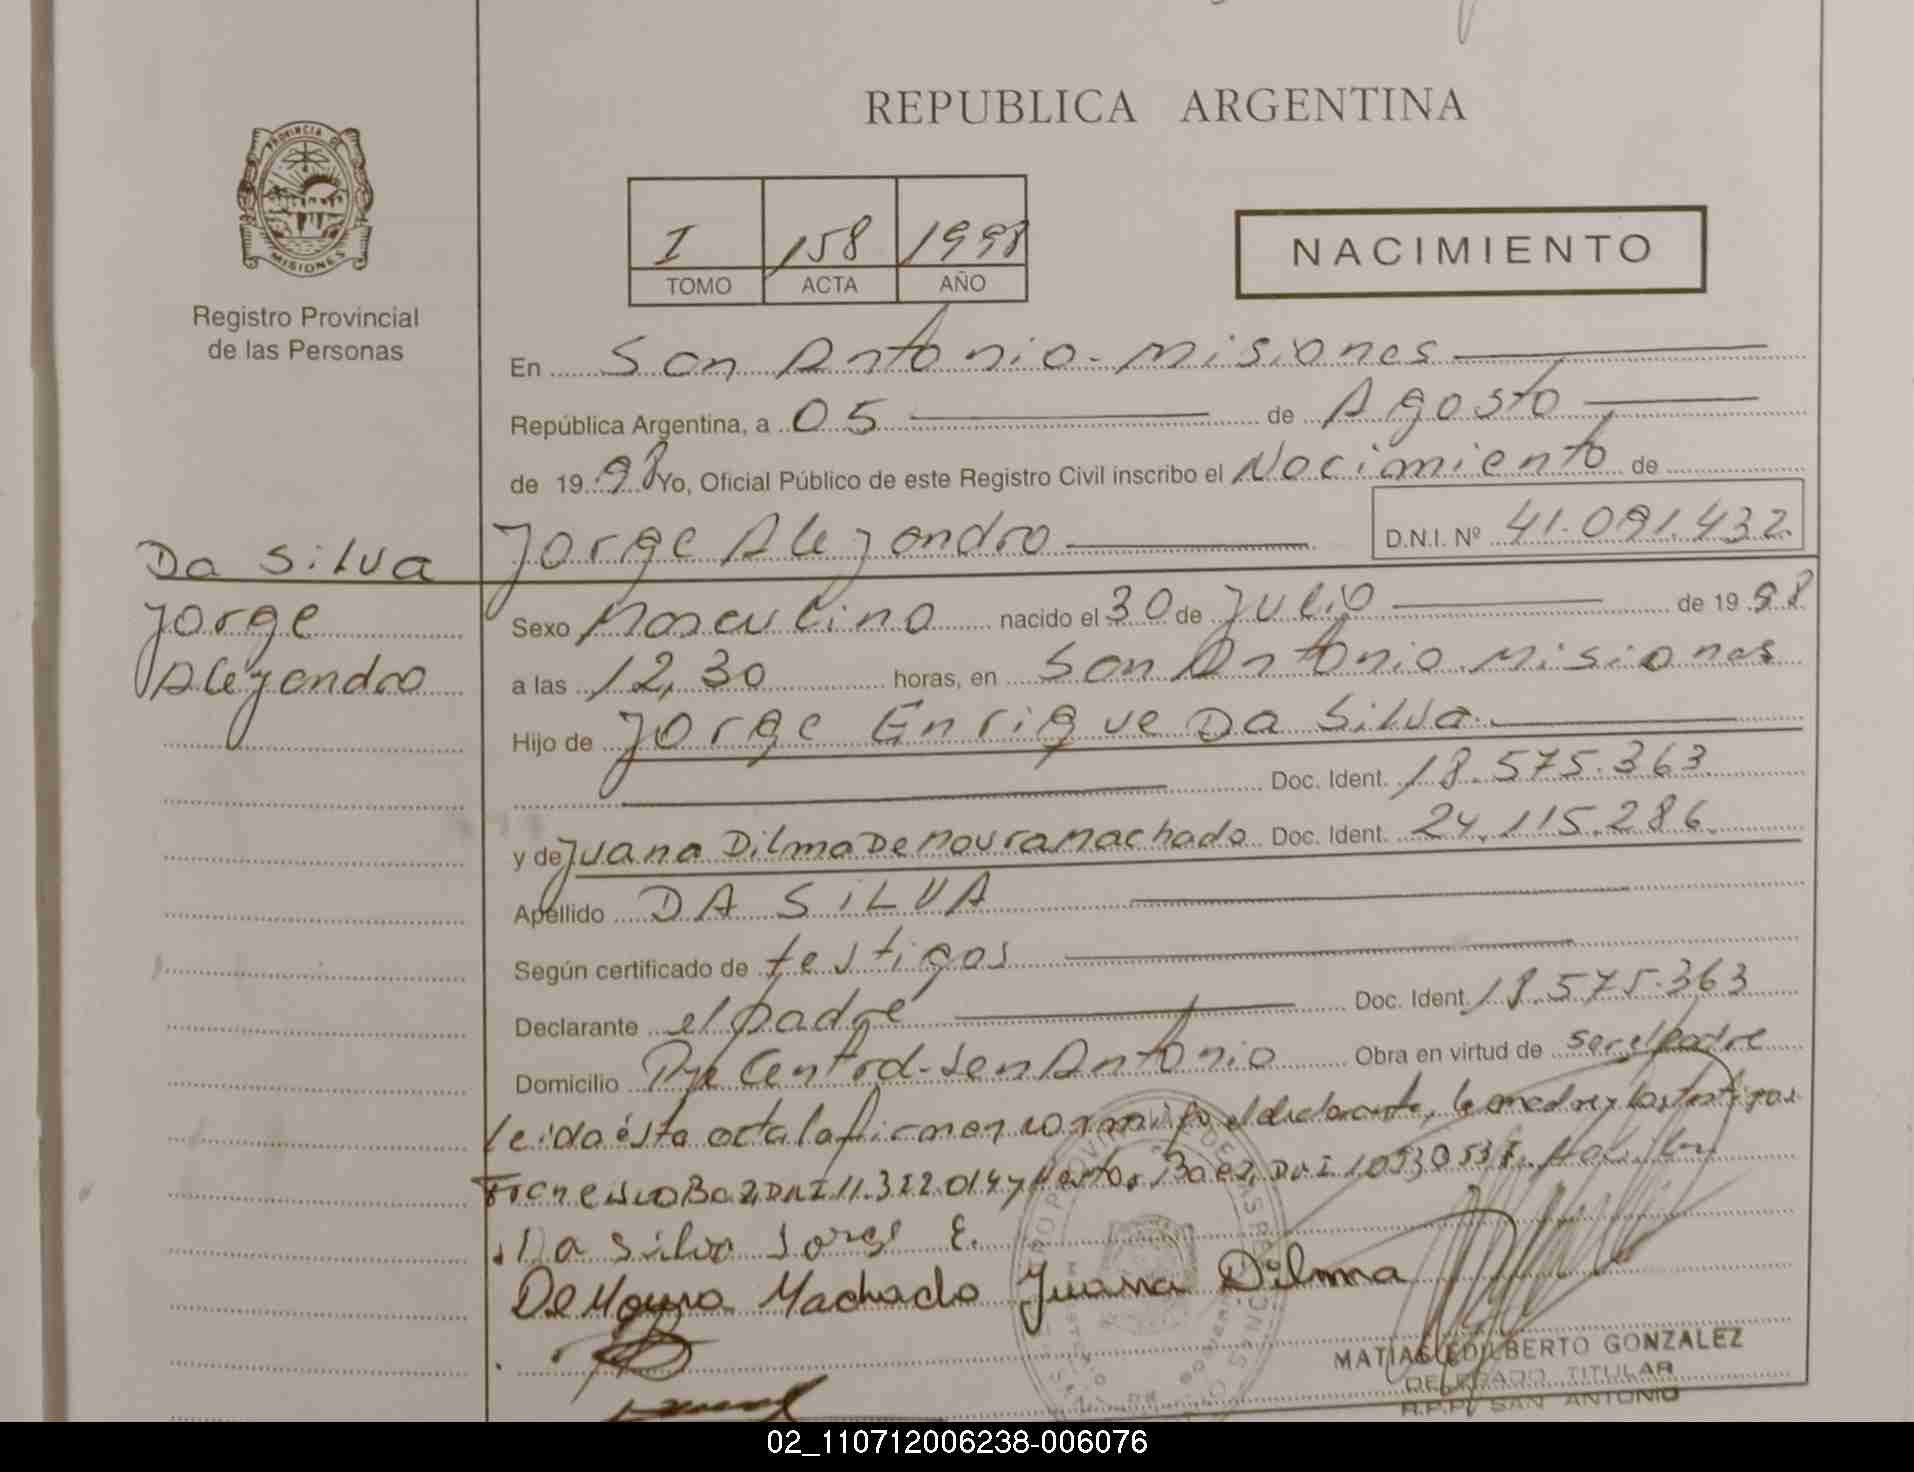 REPUBLICA ARGENTINA
PROVINCIA DE
MISIONES
Registro Provincial
de las Personas
I 158 1998
TOMO ACTA AÑO
NACIMIENTO
En San Antonio - Misiones
República Argentina, a 05 de Agosto
de 1998 Yo, Oficial Público de este Registro Civil inscribo el Nacimiento de
Jorge Alejandro D.N.I. Nº 41.091.432
Da Silva
Jorge
Alejandro
Sexo Masculino nacido el 30 de Julio de 1998
a las 12,30 horas, en San Antonio Misiones
Hijo de Jorge Enrique Da Silva
Doc. Ident. 18.575.363
y de Juana Dilma De Moura Machado Doc. Ident. 24.115.286
Apellido DA SILVA
Según certificado de testigos
Declarante el padre Doc. Ident. 18.575.363
Domicilio Central - San Antonio Obra en virtud de ser el padre
Leida ésta acta la firman conmigo el declarante, la madre y los testigos
DNI 11.322.014 y Baez, DNI
Da Silva Jorge E.
De Moura Machado Juana Dilma
MATIAS EDILBERTO GONZALEZ
DELEGADO TITULAR
R.P.P. SAN ANTONIO
02_110712006238-006076